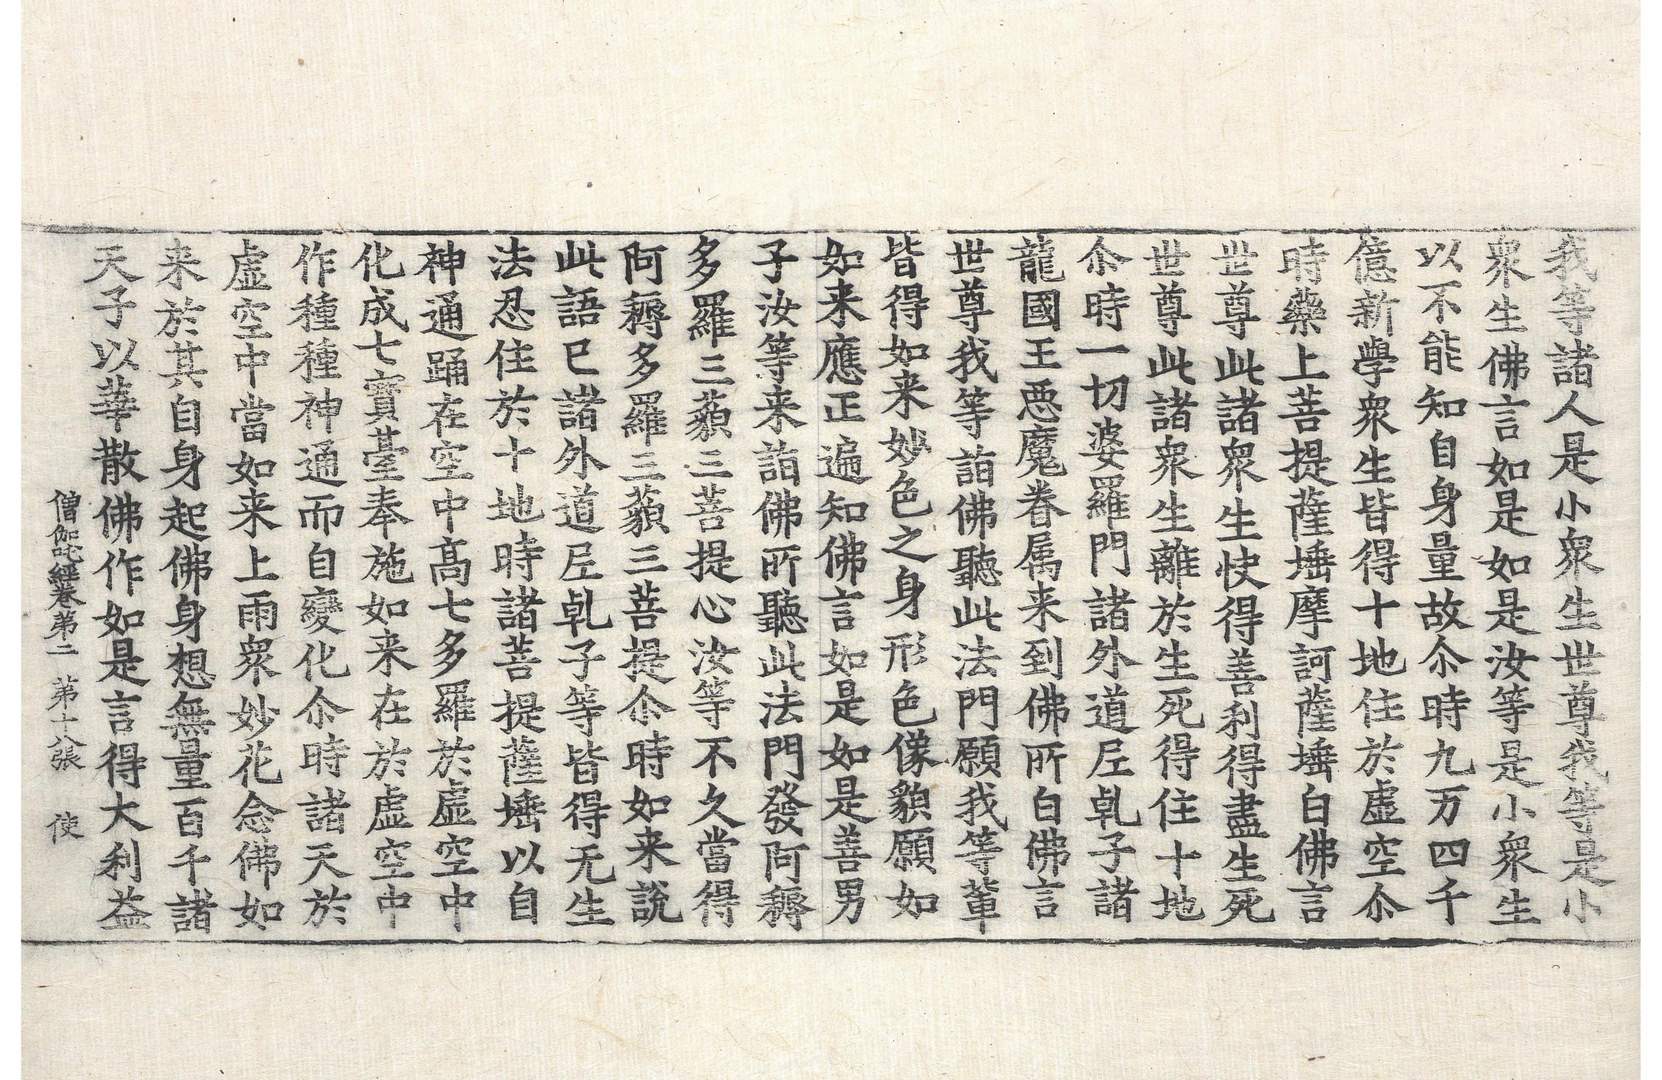 我等諸人是小衆生世尊我等是小
衆生佛言如是如是汝等是小衆生
以不能知自身量故尒時九万四千
億新學衆生皆得十地住於虛空尒
時藥上菩提薩埵摩訶薩埵白佛言
世尊此諸衆生快得善利得盡生死
世尊此諸衆生離於生死得住十地
尒時一切婆羅門諸外道尼乹子諸
龍國王惡魔眷属来到佛所白佛言
世尊我等詣佛聽此法門願我等輩
皆得如来妙色之身形色像貌願如
如来應正遍知佛言如是如是善男
子汝等来詣佛所聽此法門發阿耨
多羅三藐三菩提心汝等不久當得
阿耨多羅三藐三菩提尒時如来說
此語已諸外道尼乹子等皆得无生
法忍住於十地時諸菩提薩埵以自
神通踊在空中高七多羅於虛空中
化成七寶臺奉施如来在於虛空中
作種種神通而自變化尒時諸天於
虛空中當如来上雨衆妙花念佛如
来於其自身起佛身想無量百千諸
天子以華散佛作如是言得大利益
僧伽吒経卷第二　第十八張　使